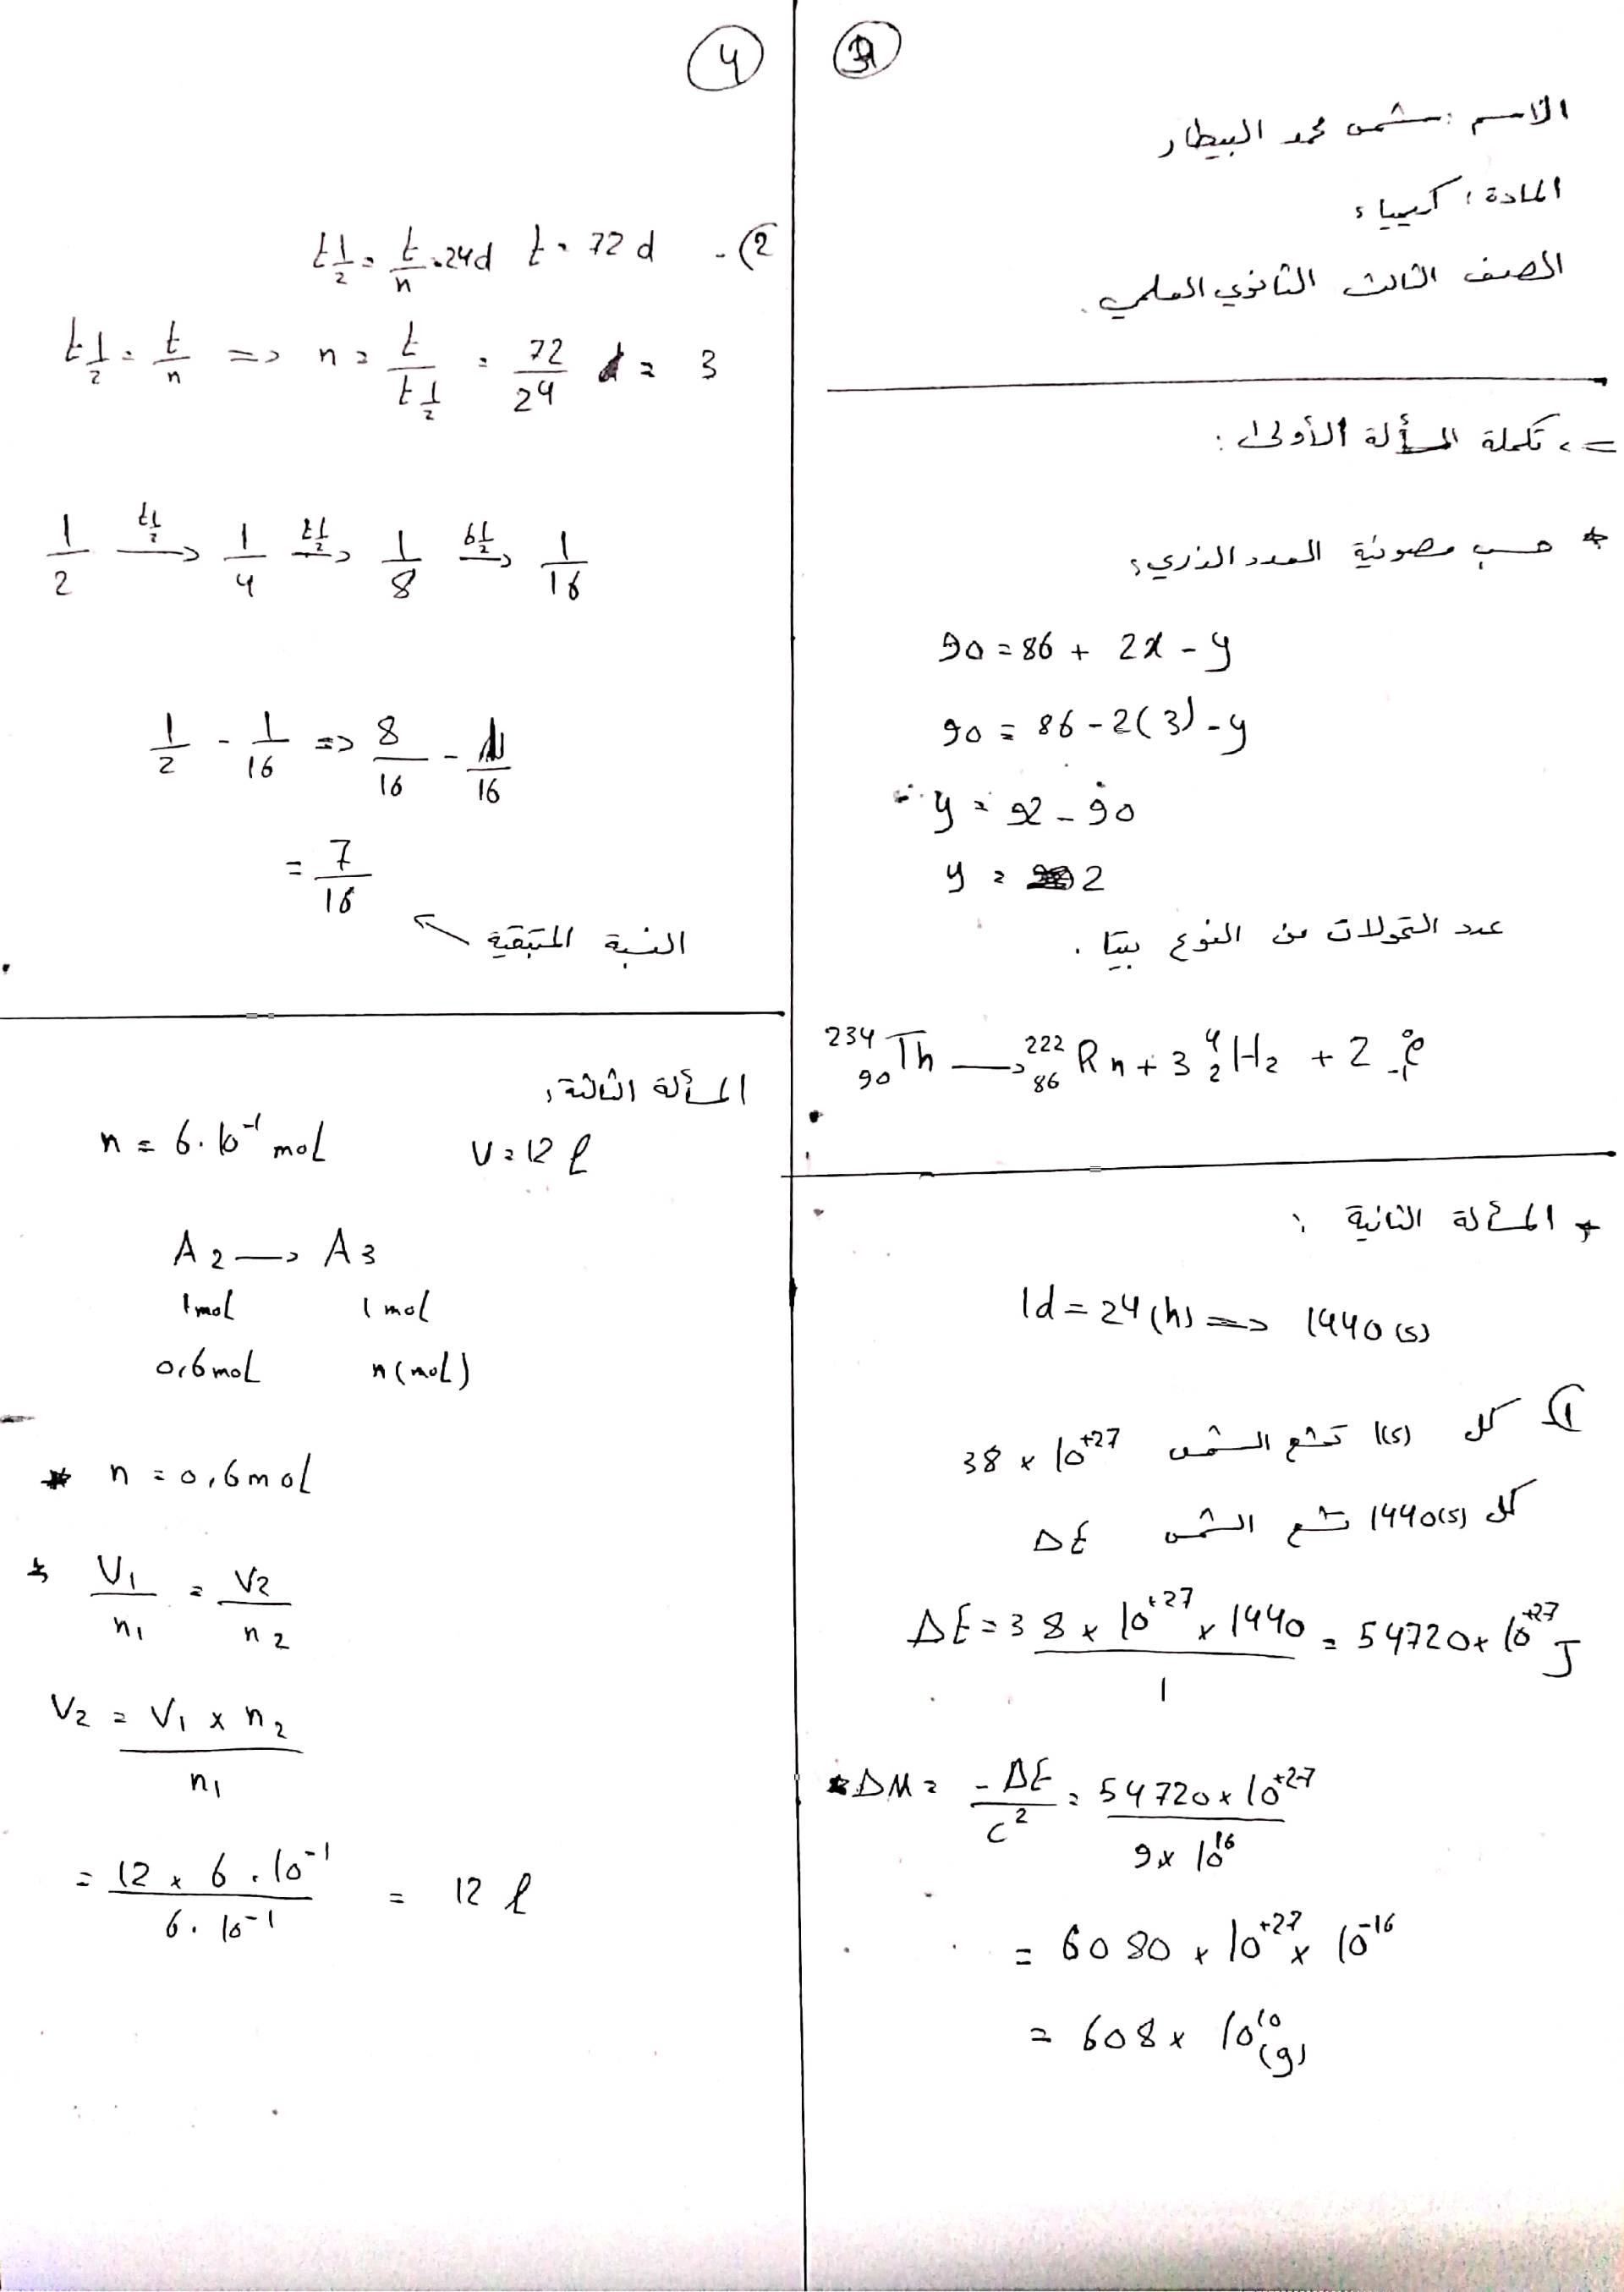 3
الاسم : شمس محمد البيطار
المادة : كيمياء
الصف الثالث الثانوي العلمي .
=> تكملة المسألة الأولى :
* حسب مصونية العدد الذري :
90 = 86 + 2x - y
90 = 86 - 2(3) - y
y = 92 - 90
y = 2
عدد التحولات من النوع بيتا .
²³⁴₉₀Th → ²²²₈₆Rn + 3 ⁴₂H2 + 2 ⁰₋₁e
* المسألة الثانية :
1d = 24(h) => 1440(s)
1) كل 1(s) تشع الشمس 38 × 10⁺²⁷
كل 1440(s) تشع الشمس ΔE
ΔE = 38 × 10⁺²⁷ × 1440 / 1 = 54720 × 10⁺²⁷ J
* ΔM = -ΔE / c² = 54720 × 10⁺²⁷ / 9 × 10¹⁶
= 6080 × 10⁺²⁷ × 10⁻¹⁶
= 608 × 10¹⁰ (g)
4
2) - t = 72 d t½ = t/n = 24d
t½ = t/n => n = t/t½ = 72/24 = 3
1/2 →(t½) 1/4 →(t½) 1/8 →(t½) 1/16
1/2 - 1/16 => 8/16 - 1/16
= 7/16
النسبة المتبقية
المسألة الثالثة :
n = 6.10⁻¹ mol V = 12 l
A2 → A3
1mol 1 mol
0,6mol n(mol)
* n = 0,6mol
* V1/n1 = V2/n2
V2 = V1 × n2 / n1
= 12 × 6.10⁻¹ / 6.10⁻¹ = 12 l